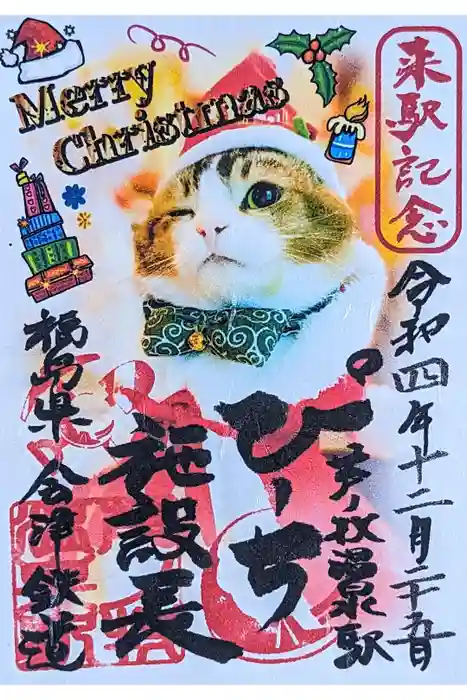 Merry
Christmas
来駅記念
令和四年十二月二十五日
芦ノ牧温泉駅
ぴーち
施設長
福島県 会津鉄道